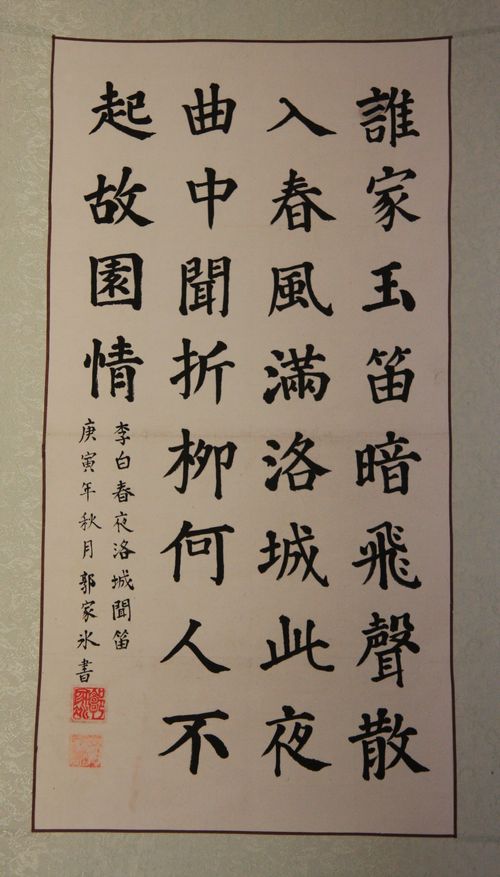 誰家玉笛暗飛聲散
入春風滿洛城此夜
曲中聞折柳何人不
起故園情
李白春夜洛城聞笛
庚寅年秋月郭家冰書